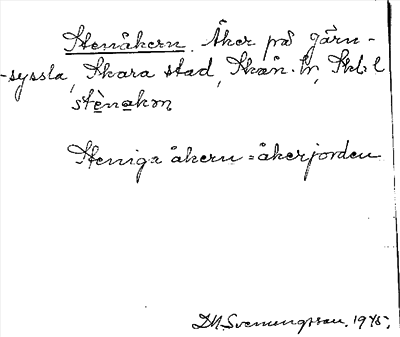 Stenåkern. Åker på gårn-
-syssla, Skara stad, Skån. hr, Skb. l
stènakɷn
Steniga åkern = åkerjorden
D.N. Svenungsson. 1945.